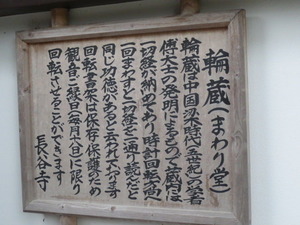 輪蔵(まわり堂)
輪蔵は中国梁時代(五世紀)の学者
傅大士の発明によるもので蔵内には
一切経が納めてあり、時計回転に
一回まわすと一切経を一通り読んだと
同じ功徳があると云われております
回転書架は保存・保護のため
観音ご縁日(毎月十八日)に限り
回転させることができます
長谷寺